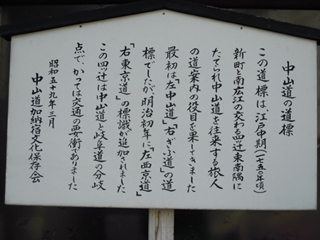 中山道の道標
この道標は、江戸中期(一七五〇年頃)
新町と南広江の交わる四辻東南隅に
たてられ中山道を往来する旅人
の道案内の役目を果してきました
最初は「左中山道」「右ぎふ道」の道
標でしたが、明治初年に、「左西京道」
「右東京道」の標識が追加されました
この四ッ辻は中山道と岐阜道の分岐
点で、かっては交通の要衝でありました
昭和五十九年三月
中山道加納宿文化保存会